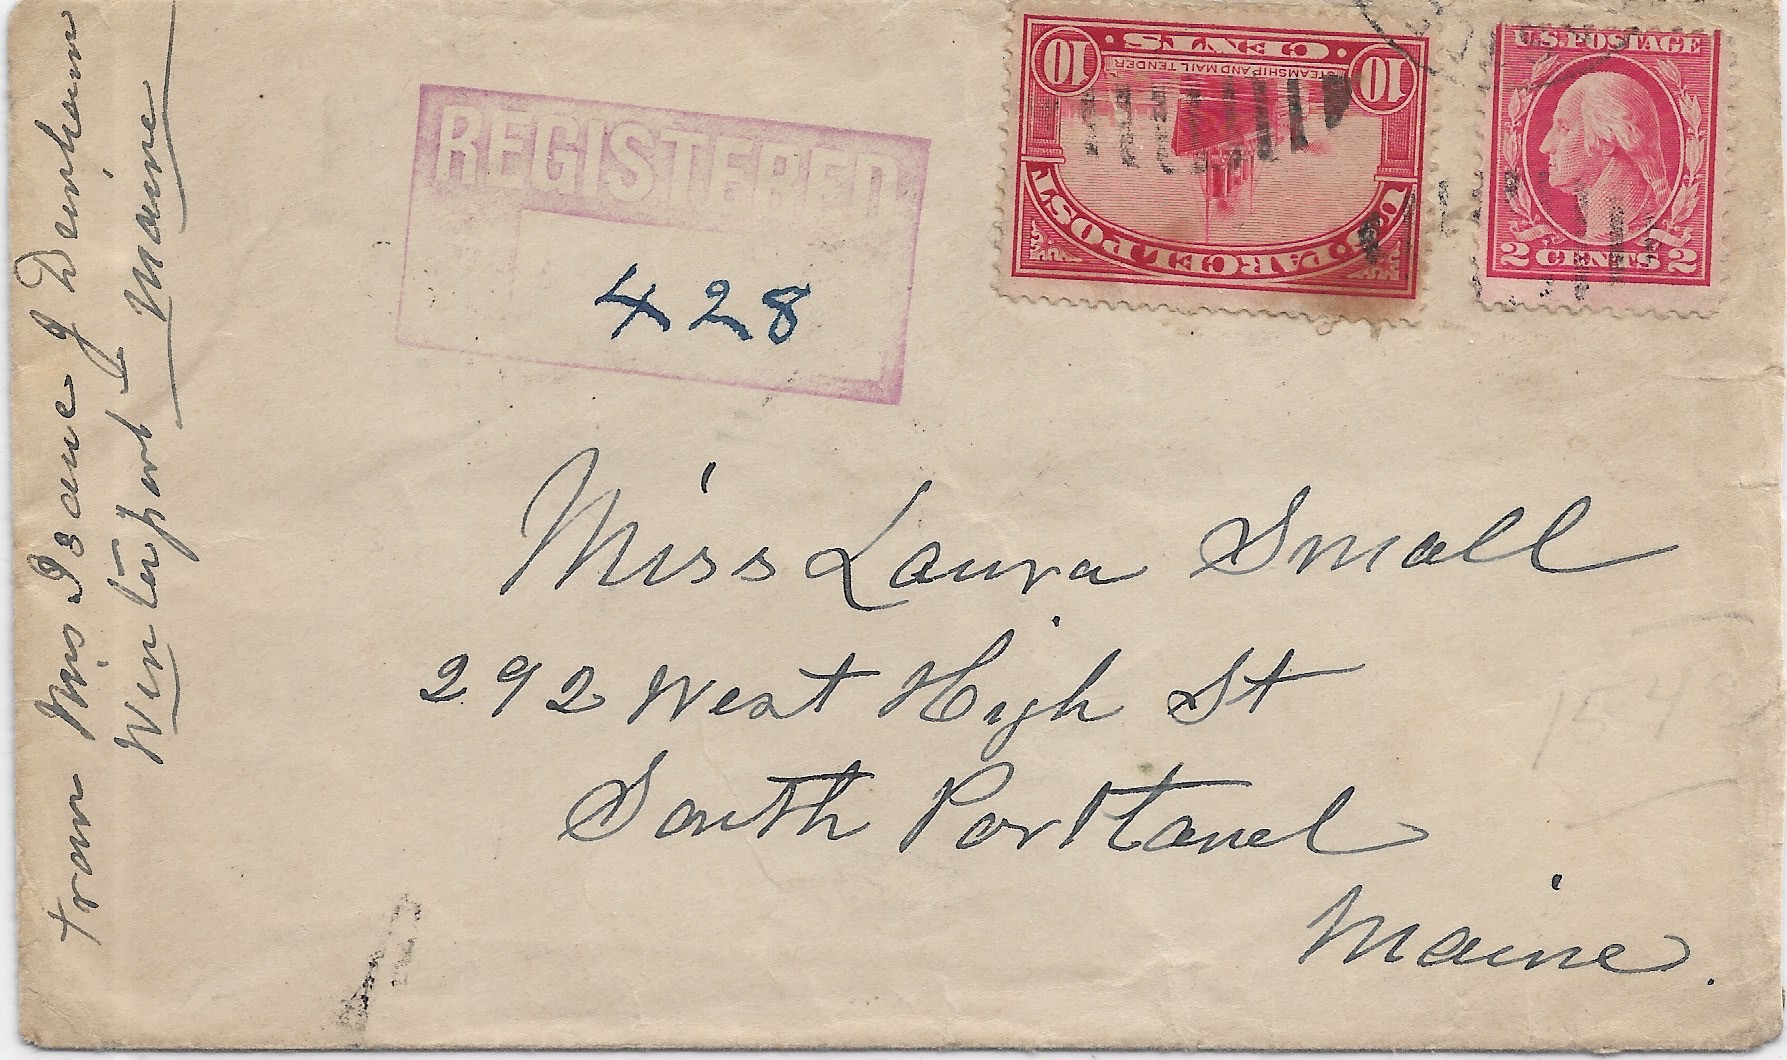 from Mrs Isaac J Denham
Winterport Maine
REGISTERED
428
10 CENTS 10
STEAMSHIP AND MAIL TENDER
U.S. PARCEL POST
U.S. POSTAGE
2 CENTS 2
Miss Laura Small
292 West High St
South Portland
Maine.